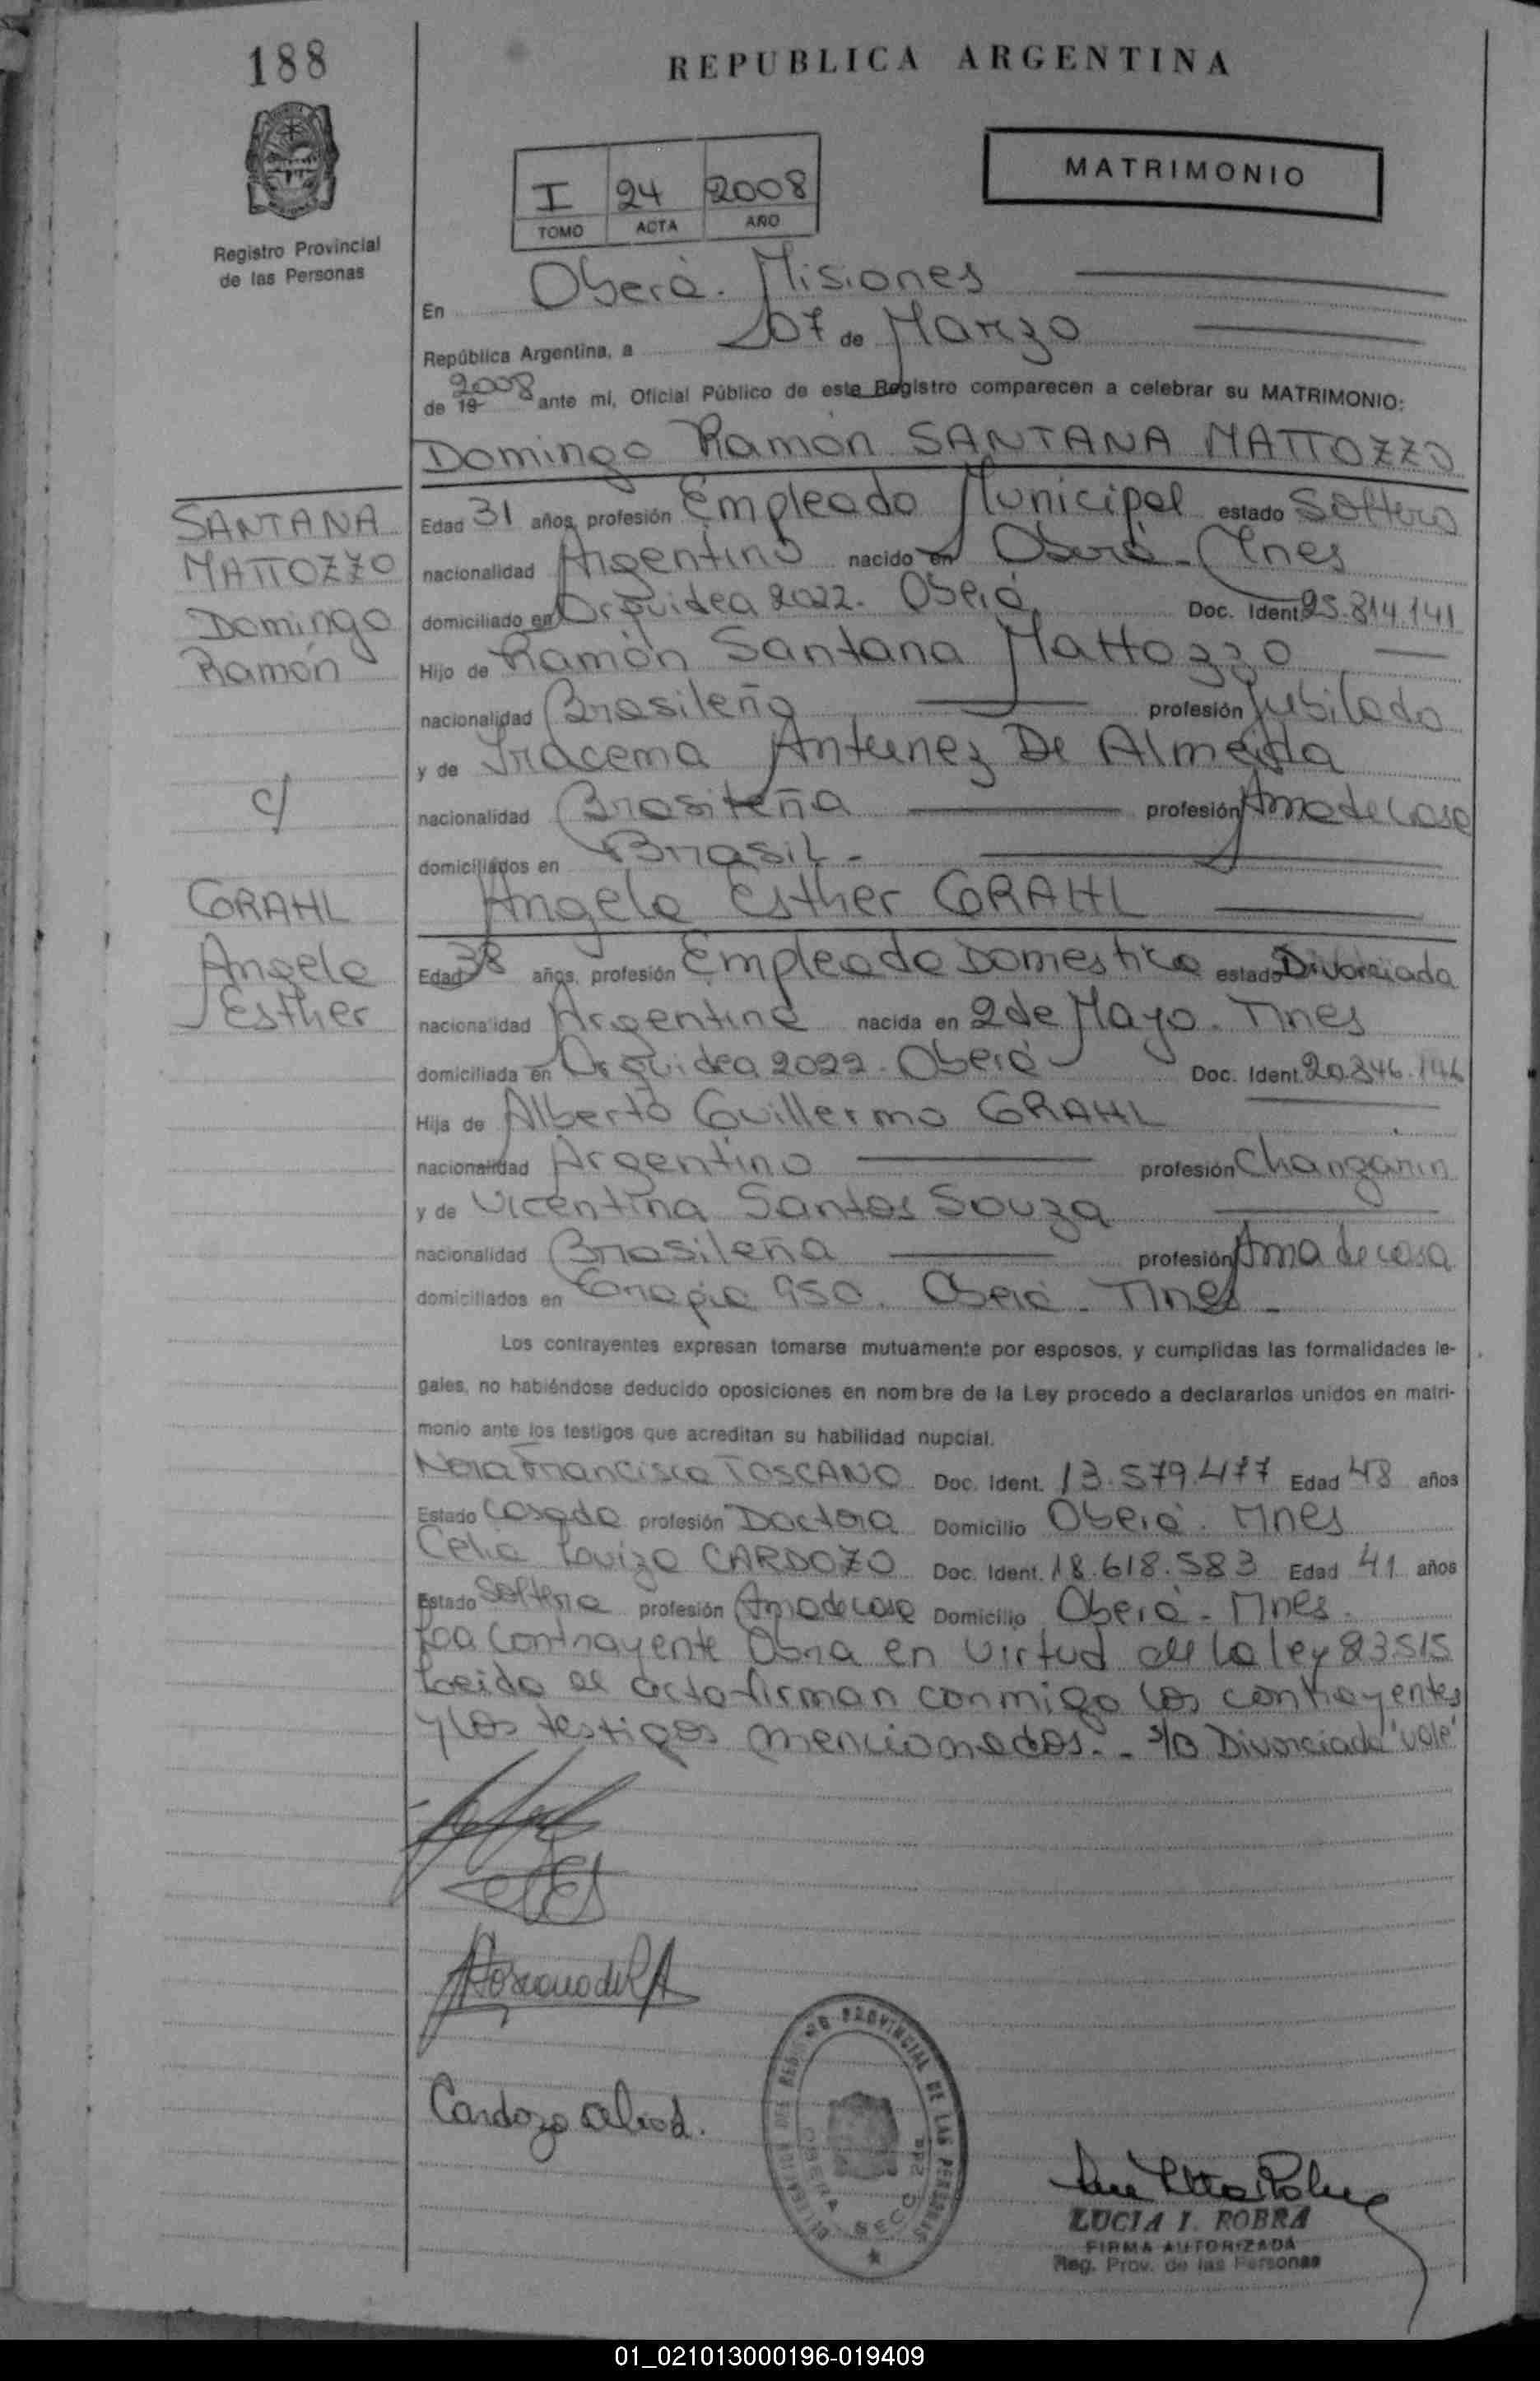 188
REPUBLICA ARGENTINA
I 24 2008
TOMO ACTA AÑO
MATRIMONIO
Registro Provincial
de las Personas
En Oberá. Misiones
República Argentina, a 07 de Marzo
de 19 2008 ante mi, Oficial Público de este Registro comparecen a celebrar su MATRIMONIO:
Domingo Ramón SANTANA MATTOZZO
SANTANA
MATTOZZO
Domingo
Ramón
c/
GRAHL
Angela
Esther
Edad 31 años, profesión Empleado Municipal estado Soltero
nacionalidad Argentino nacido en Oberá - Mnes
domiciliado en Orquidea 2022. Oberá Doc. Ident. 25.814.141
Hijo de Ramón Santana Mattozzo
nacionalidad Brasileño profesión Jubilado
y de Iracema Antunez De Almeida
nacionalidad Brasileña profesión Ama de Casa
domiciliados en Brasil -
Angela Esther GRAHL
Edad 38 años, profesión Empleada Domestica estado Divorciada
nacionalidad Argentina nacida en 2 de Mayo. Mnes
domiciliada en Orquidea 2022. Oberá Doc. Ident. 20.846.146
Hija de Alberto Guillermo GRAHL
nacionalidad Argentino profesión Changarin
y de Vicentina Santos Souza
nacionalidad Brasileña profesión Ama de casa
domiciliados en 950. Oberá - Mnes -
Los contrayentes expresan tomarse mutuamente por esposos, y cumplidas las formalidades le-
gales, no habiéndose deducido oposiciones en nombre de la Ley procedo a declararlos unidos en matri-
monio ante los testigos que acreditan su habilidad nupcial.
Nora Francisca TOSCANO Doc. Ident. 13.579.477 Edad 48 años
Estado Casada profesión Doctora Domicilio Oberá. Mnes
Celia Louiza CARDOZO Doc. Ident. 18.618.583 Edad 41 años
Estado Soltera profesión Ama de casa Domicilio Oberá - Mnes.
Contrayente Obra en virtud de la ley 23515
Leida el acta firman conmigo los contrayentes
y los testigos mencionados. - s/B Divorciada "vale"
Cardozo
DELEGACION DEL REGISTRO PROVINCIAL DE LAS PERSONAS
OBERA SECC. 2da
LUCIA I. ROBRA
FIRMA AUTORIZADA
Reg. Prov. de las Personas
01_021013000196-019409